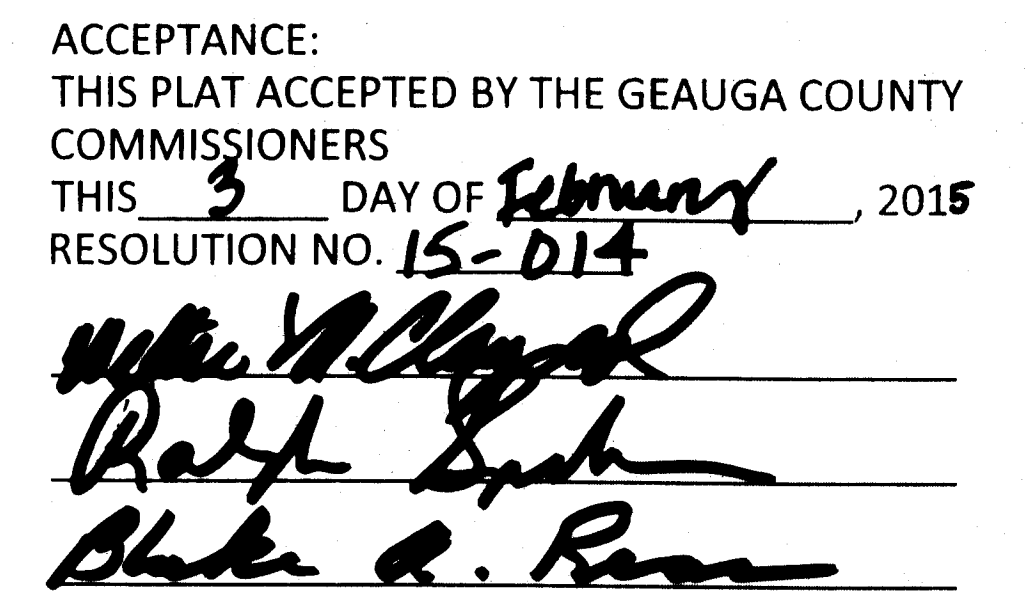 ACCEPTANCE:
THIS PLAT ACCEPTED BY THE GEAUGA COUNTY
COMMISSIONERS
THIS 3 DAY OF February, 2015
RESOLUTION NO. 15-014
Ralph
Blake A.